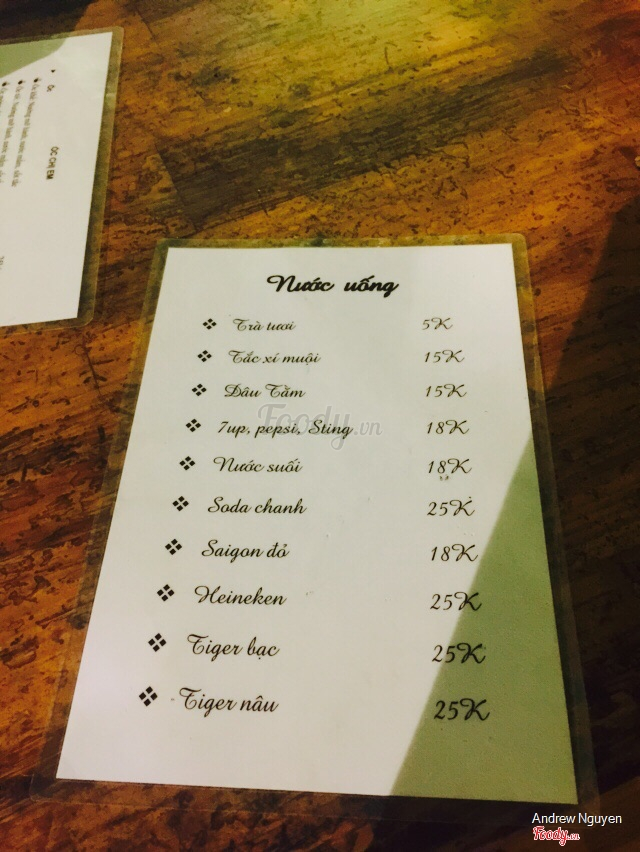 ỐC CHỊ EM
Nước uống
❖ Trà tươi 5K
❖ Tắc xí muội 15K
❖ Dâu Tằm 15K
❖ 7up, pepsi, Sting 18K
❖ Nước suối 18K
❖ Soda chanh 25K
❖ Saigon đỏ 18K
❖ Heineken 25K
❖ Tiger bạc 25K
❖ Tiger nâu 25K
Foody.vn
Andrew Nguyen
Foody.vn